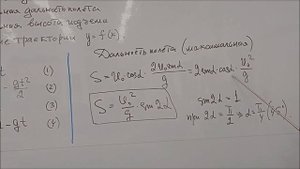 дальность полёта
высота подъёма
траектории y = f(x).
t (1)
gt²/2 (2)
(3)
- gt (4)
Дальность полёта (максимальная)
S = v₀cosα · 2v₀sinα/g = 2sinα·cosα · v₀²/g
S = v₀²/g · sin2α
sin2α = 1
при 2α = π/2 ⇒ α = π/4 (45°)